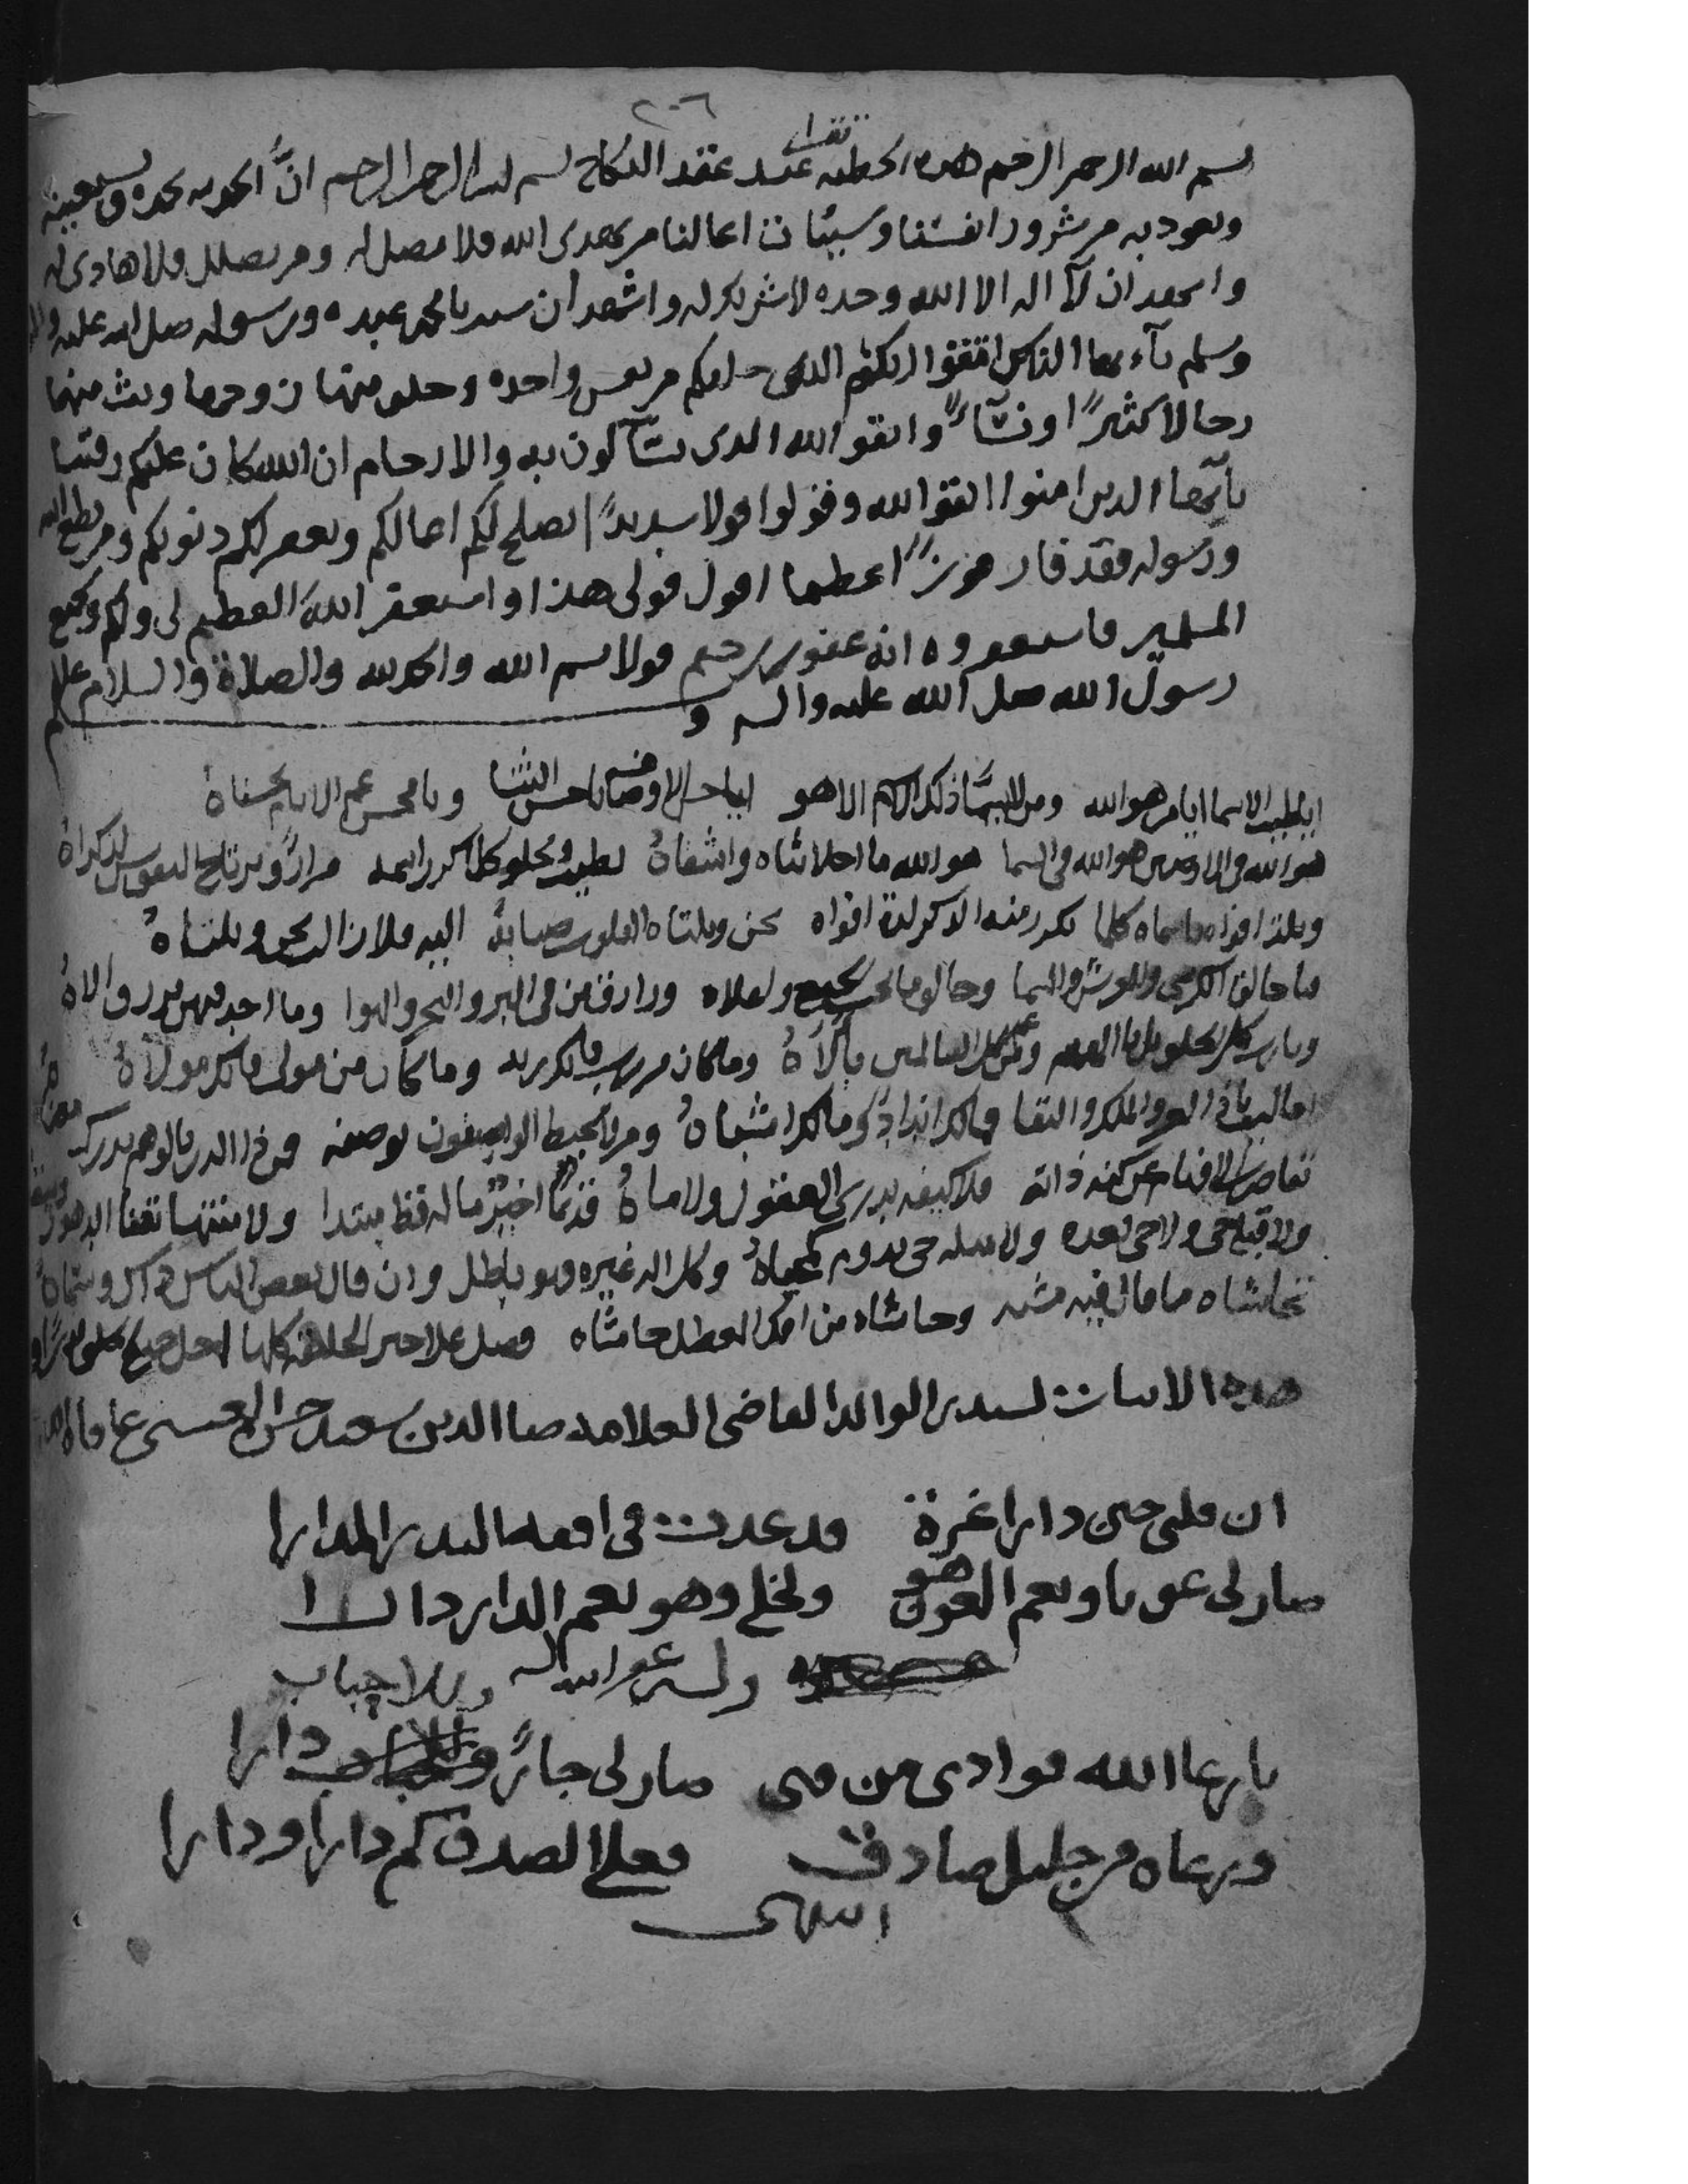 ٢٠٦
تقرا
بسم الله الرحمن الرحيم هذه الخطبه عند عقد النكاح بسم الله الرحمن الرحيم انَّ الحمد لله نحمده ونستعينه
ونعوذ به من شرور انفسنا وسيئات اعمالنا من يهدى الله فلا مضل له ومن يضلل فلا هادى له
واشهد ان لآ اله الا الله وحده لا شريك له واشهد أن سيدنا محمد عبده ورسوله صلى الله عليه واله
وسلم يآءيها الناس اتقوا ربكم الذى خلقكم من نفس واحده وخلق منها زوجها وبث منهما
رجالا كثيرًا ونسآءً واتقو الله الذى تسآلون به والارحام ان الله كان عليكم رقيبا
يآيها الذين امنوا اتقو الله وقولوا قولا سديدًا يصلح لكم اعمالكم ويغفر لكم ذنوبكم ومن يطع الله
ورسوله فقد فاز فوزًا عظيما اقول قولى هذا واستغفر الله العظيم لى ولكم ولجميع
المسلمين فاستغفروه انه غفور رحيم قولا بسم الله والحمد لله والصلاة والسلام على
رسول الله صلى الله عليه واله وسلم
ايا طيب الاسما ايا من هو الله ومن لا يسمَّا ذلك الاسم الا هو ايا حسن الاوصاف يا حسن الثنا ويا محسن عم الانام بحسناهُ
هو الله فى الارضين هو الله فى السما هو الله ما احلا ثناه واشفاهُ يطيب ويحلو كلما كرر اسمه مرارًا ويرتاح النفوس لذكراهُ
ويلذ افواه باسماه كلما تكرر منه الذكر لذه افواه تحن وتلتاه القلوب صبابةً اليه فلا زالت تحن وتلتاهُ
فيا خالق الكرسى والعرش والسما وخالق ما تحت الجميع واعلاه ورازق من فى البر والبحر والهوا وما احد منهن يرزق الاهُ
ويا رب كل الخلق يا ذا العـ ومن عم كل العالمين بآلآهُ وما كان من رب فانك ربه وما كان من مولى فانك مولاهُ
تعاليت يا ذا العز والملك والبقا فما لك اندادٌ وما لك اشباهُ ومن لا يحيط الواصفون بوصفه فمن ذا الذى بالوهم يدركـ
تقاصرت الافهام عن كنه ذاته فلا كيفه يدرى العقول ولا ماهُ قديمٌ اخيرٌ ما له قط مبتدا ولا منتها تفنا الدهور
ولا قبله حى ولا حى بعده ولا مثله حى يدوم كمحياهُ وكل اله غيره فهو باطل وان قال بعض الناس ذاك وسماهُ
تحاشاه ما قال فيه مشبه وحاشاه من افك المعطل حاشاه وصل على خير الخلائق كلها
هذه الابيات لسيدى الوالد القاضى العلامه ضيا الدين سعيد حسن العنسى عافاه الله
ان قلبى حين دارا غرة قد غدت فى افقه البدر المدارا
صار لى عونا ونعم العون هو ولخلى وهو نعم الدار دارا
وله عفى الله عنه
وللاحباب
يا رعا الله فوادى من فتى صار لى جارًا دارا
ورعاه من خليل صادق فعلى الصدق كم دارا ودارا
انتهى